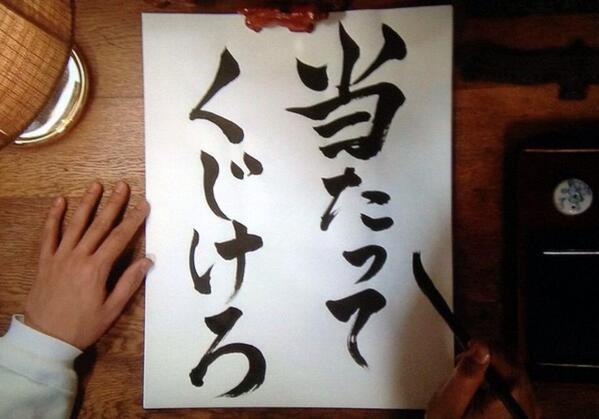 当たって
くじけろ